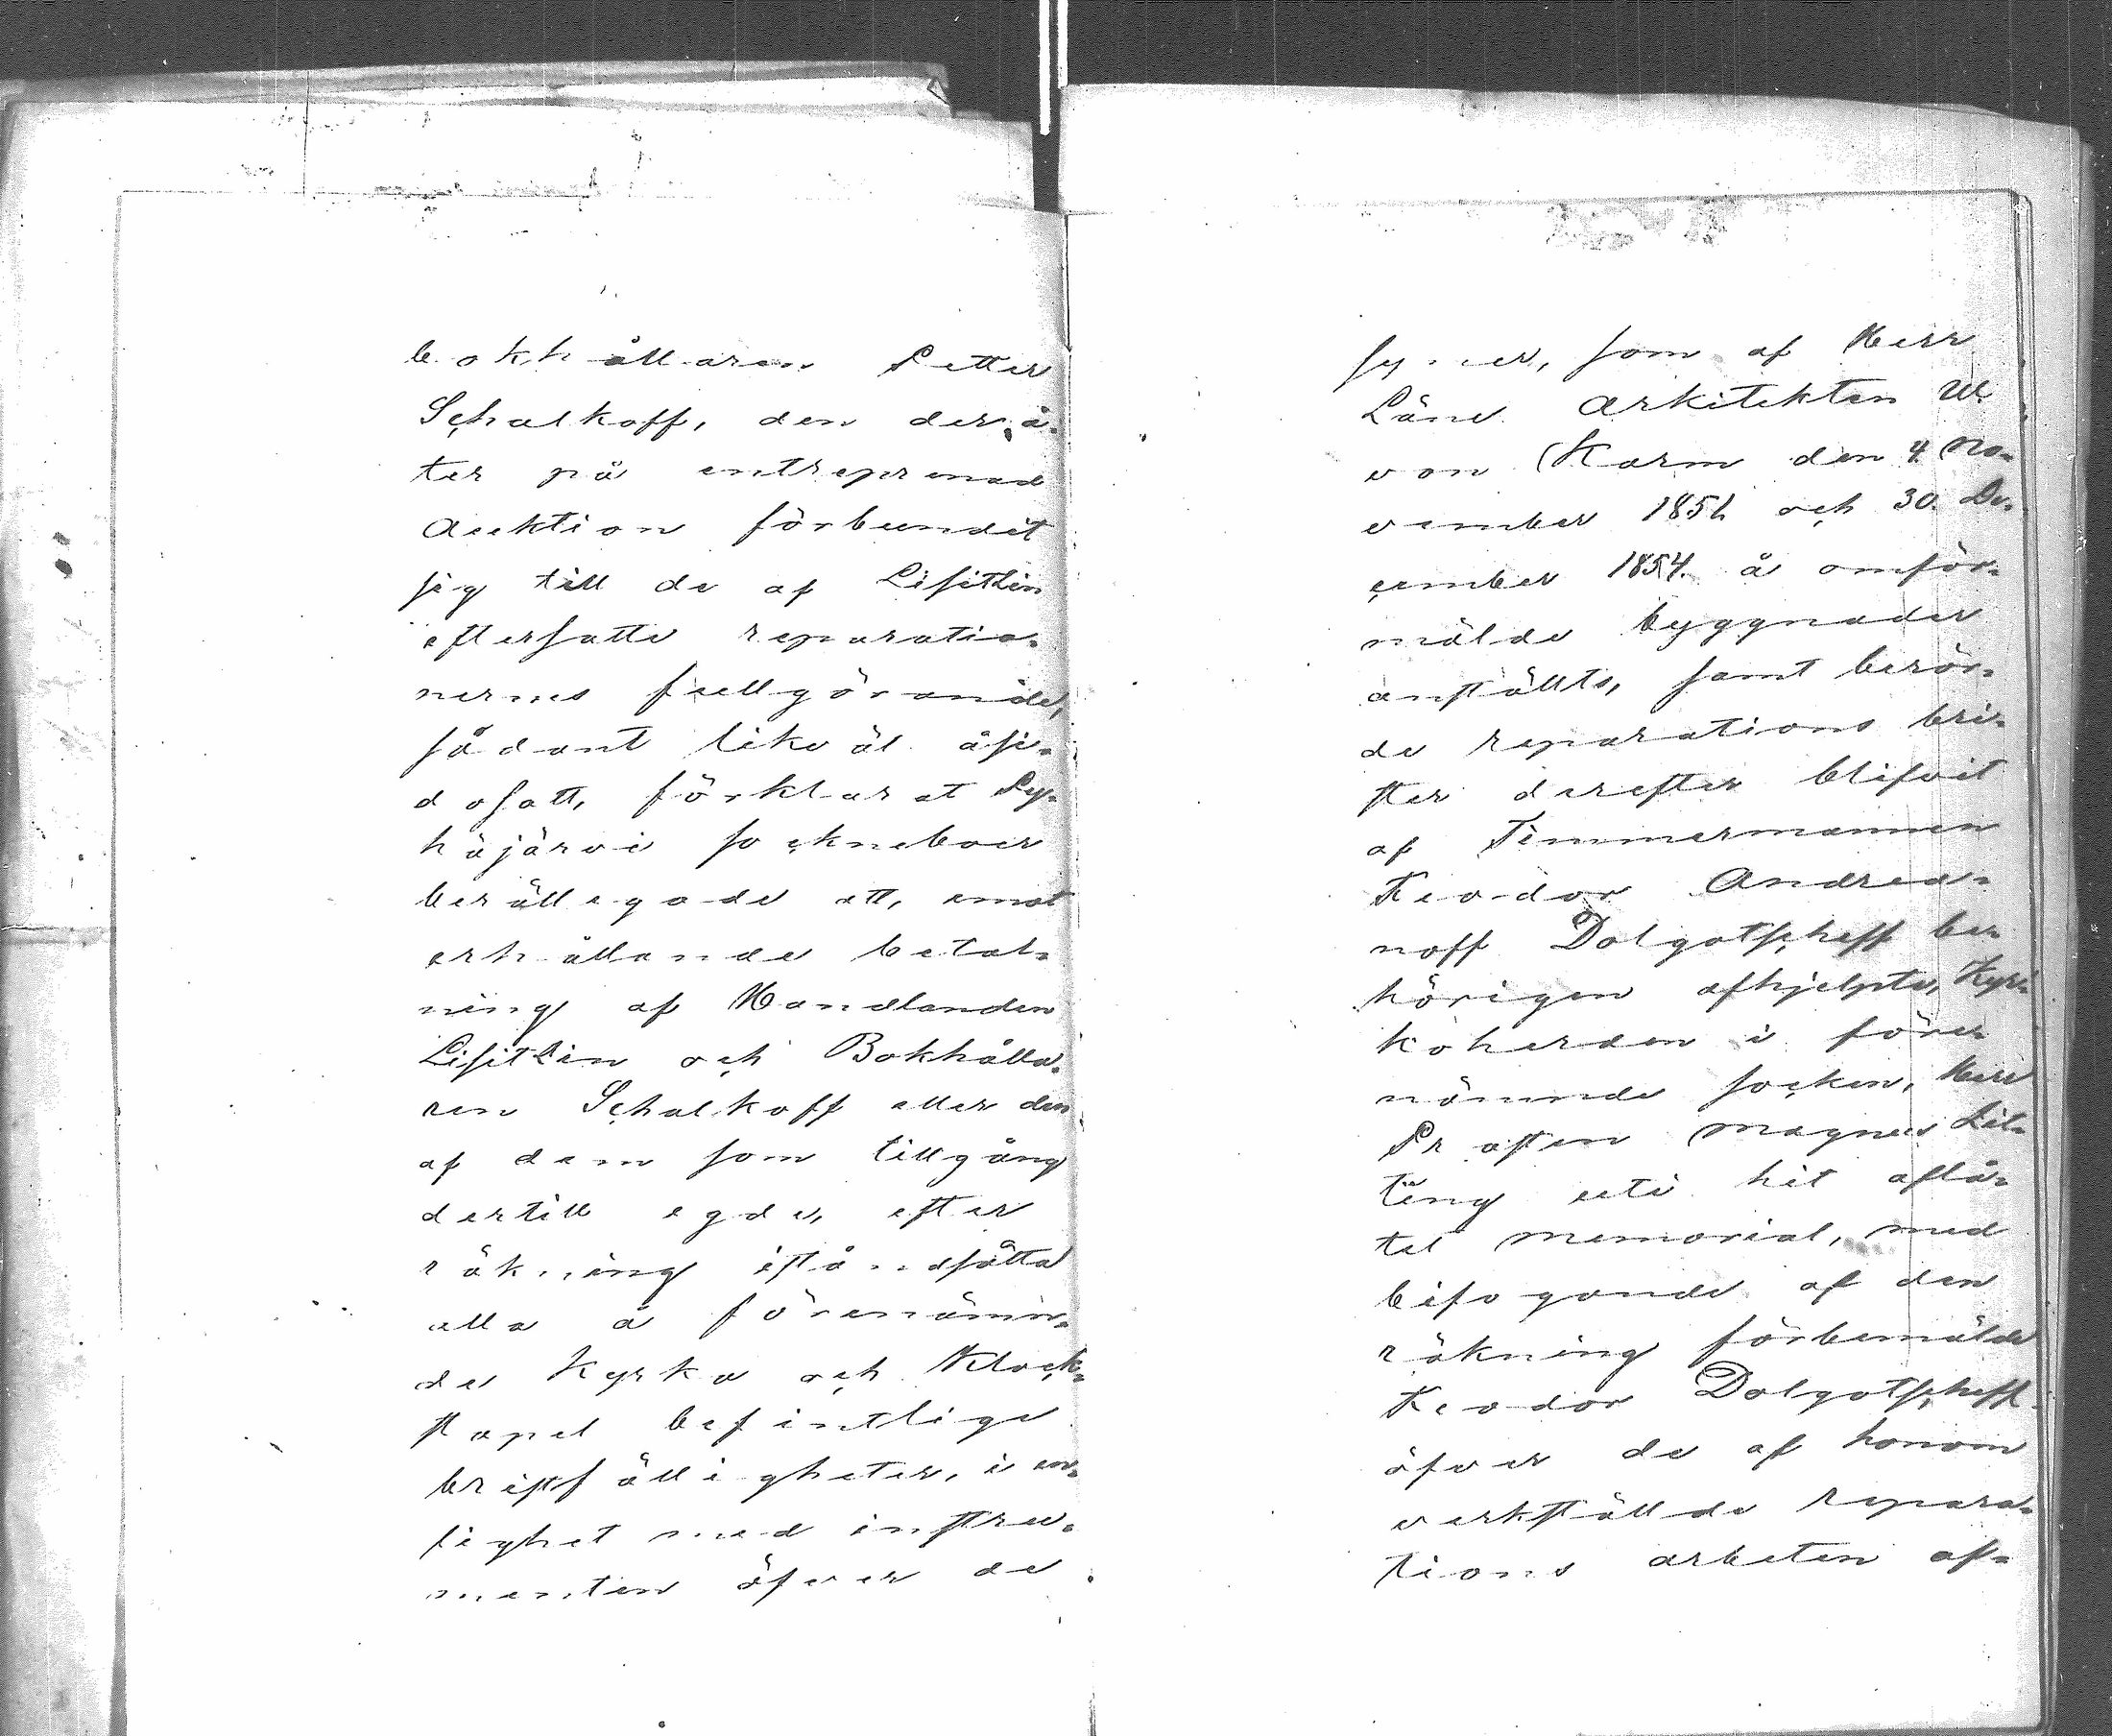 bokhållaren Petter
Schalkoff, den derå-
ter på entreprenad
auktion förbundit
sig till de af Lisitzin
eftersatte reparatio-
nernes fullgörande,
sådant likväl åsi-
dosatt, förklarat Py-
häjärvi sockneboer
berättegade att, emot
erhållande betal-
ning af Handlanden
Lisitzin och Bokhålla-
ren Schalkoff eller den
af dem som tillgång
dertill egde, efter
räkning iståndsätta
alla å förenämn-
de Kyrka och Klock-
stapel befintlige
bristfälligheter, i en-
lighet med instru-
menten öfver de
syner, som af Herr
Läns Arkitekten W.
von Karm den 4 No-
vember 1851 och 30 De-
cember 1854 å omför-
mälde byggnader
anställts, samt berör-
de reparations bri-
ster derefter blifvit
af Timmermannen
Feodor Andrea-
noff Dolgotscheff be-
hörigen afhjelpte, Kyr-
koherden i före-
nämnde socken, Herr
Prosten Magnus Lit-
ting uti hit aflå-
tet memorial, med
bifogande af den
räkning förbemälde
Feodor Dolgotscheff
öfver de af honom
verkställde repara-
tions arbeten af-